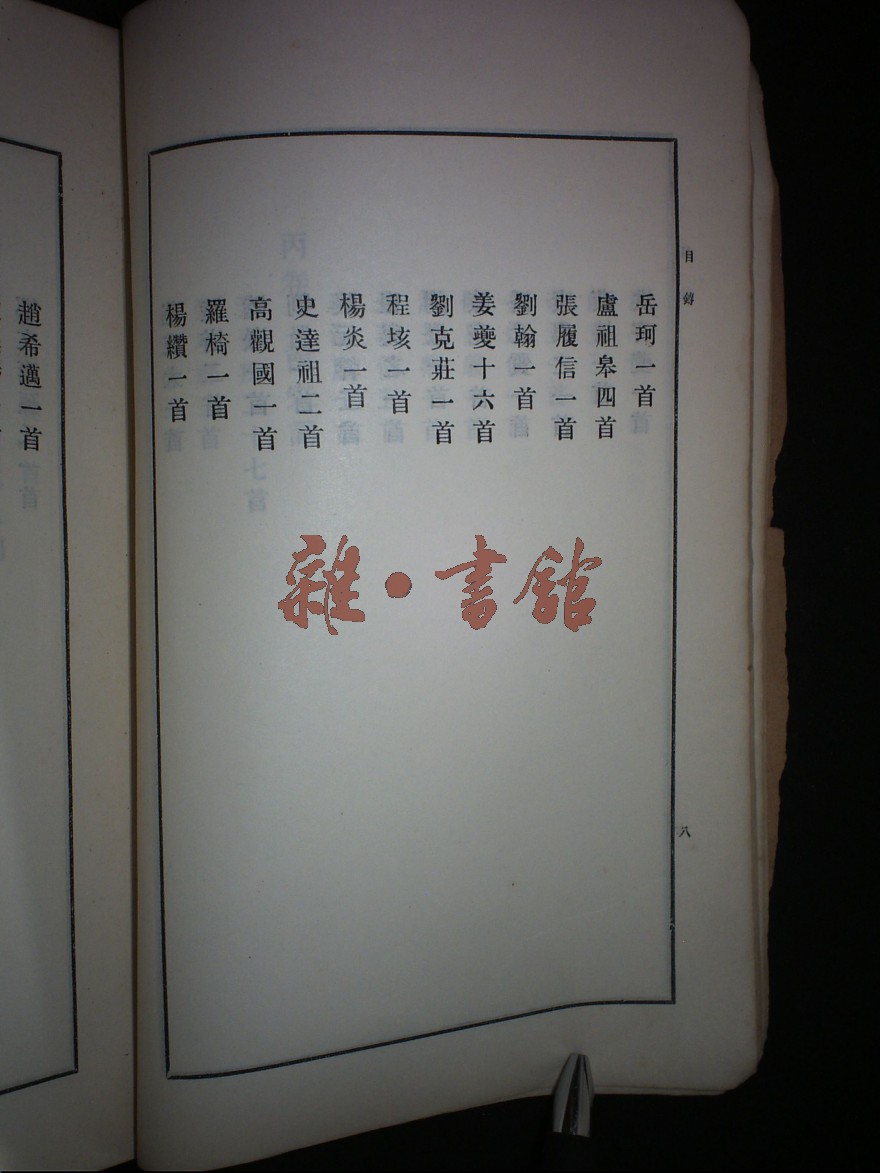 目錄
八
岳珂一首
盧祖皋四首
張履信一首
劉翰一首
姜夔十六首
劉克莊一首
程垓一首
楊炎一首
史達祖二首
高觀國一首
羅椅一首
楊纘一首
趙希邁一首
雜·書館